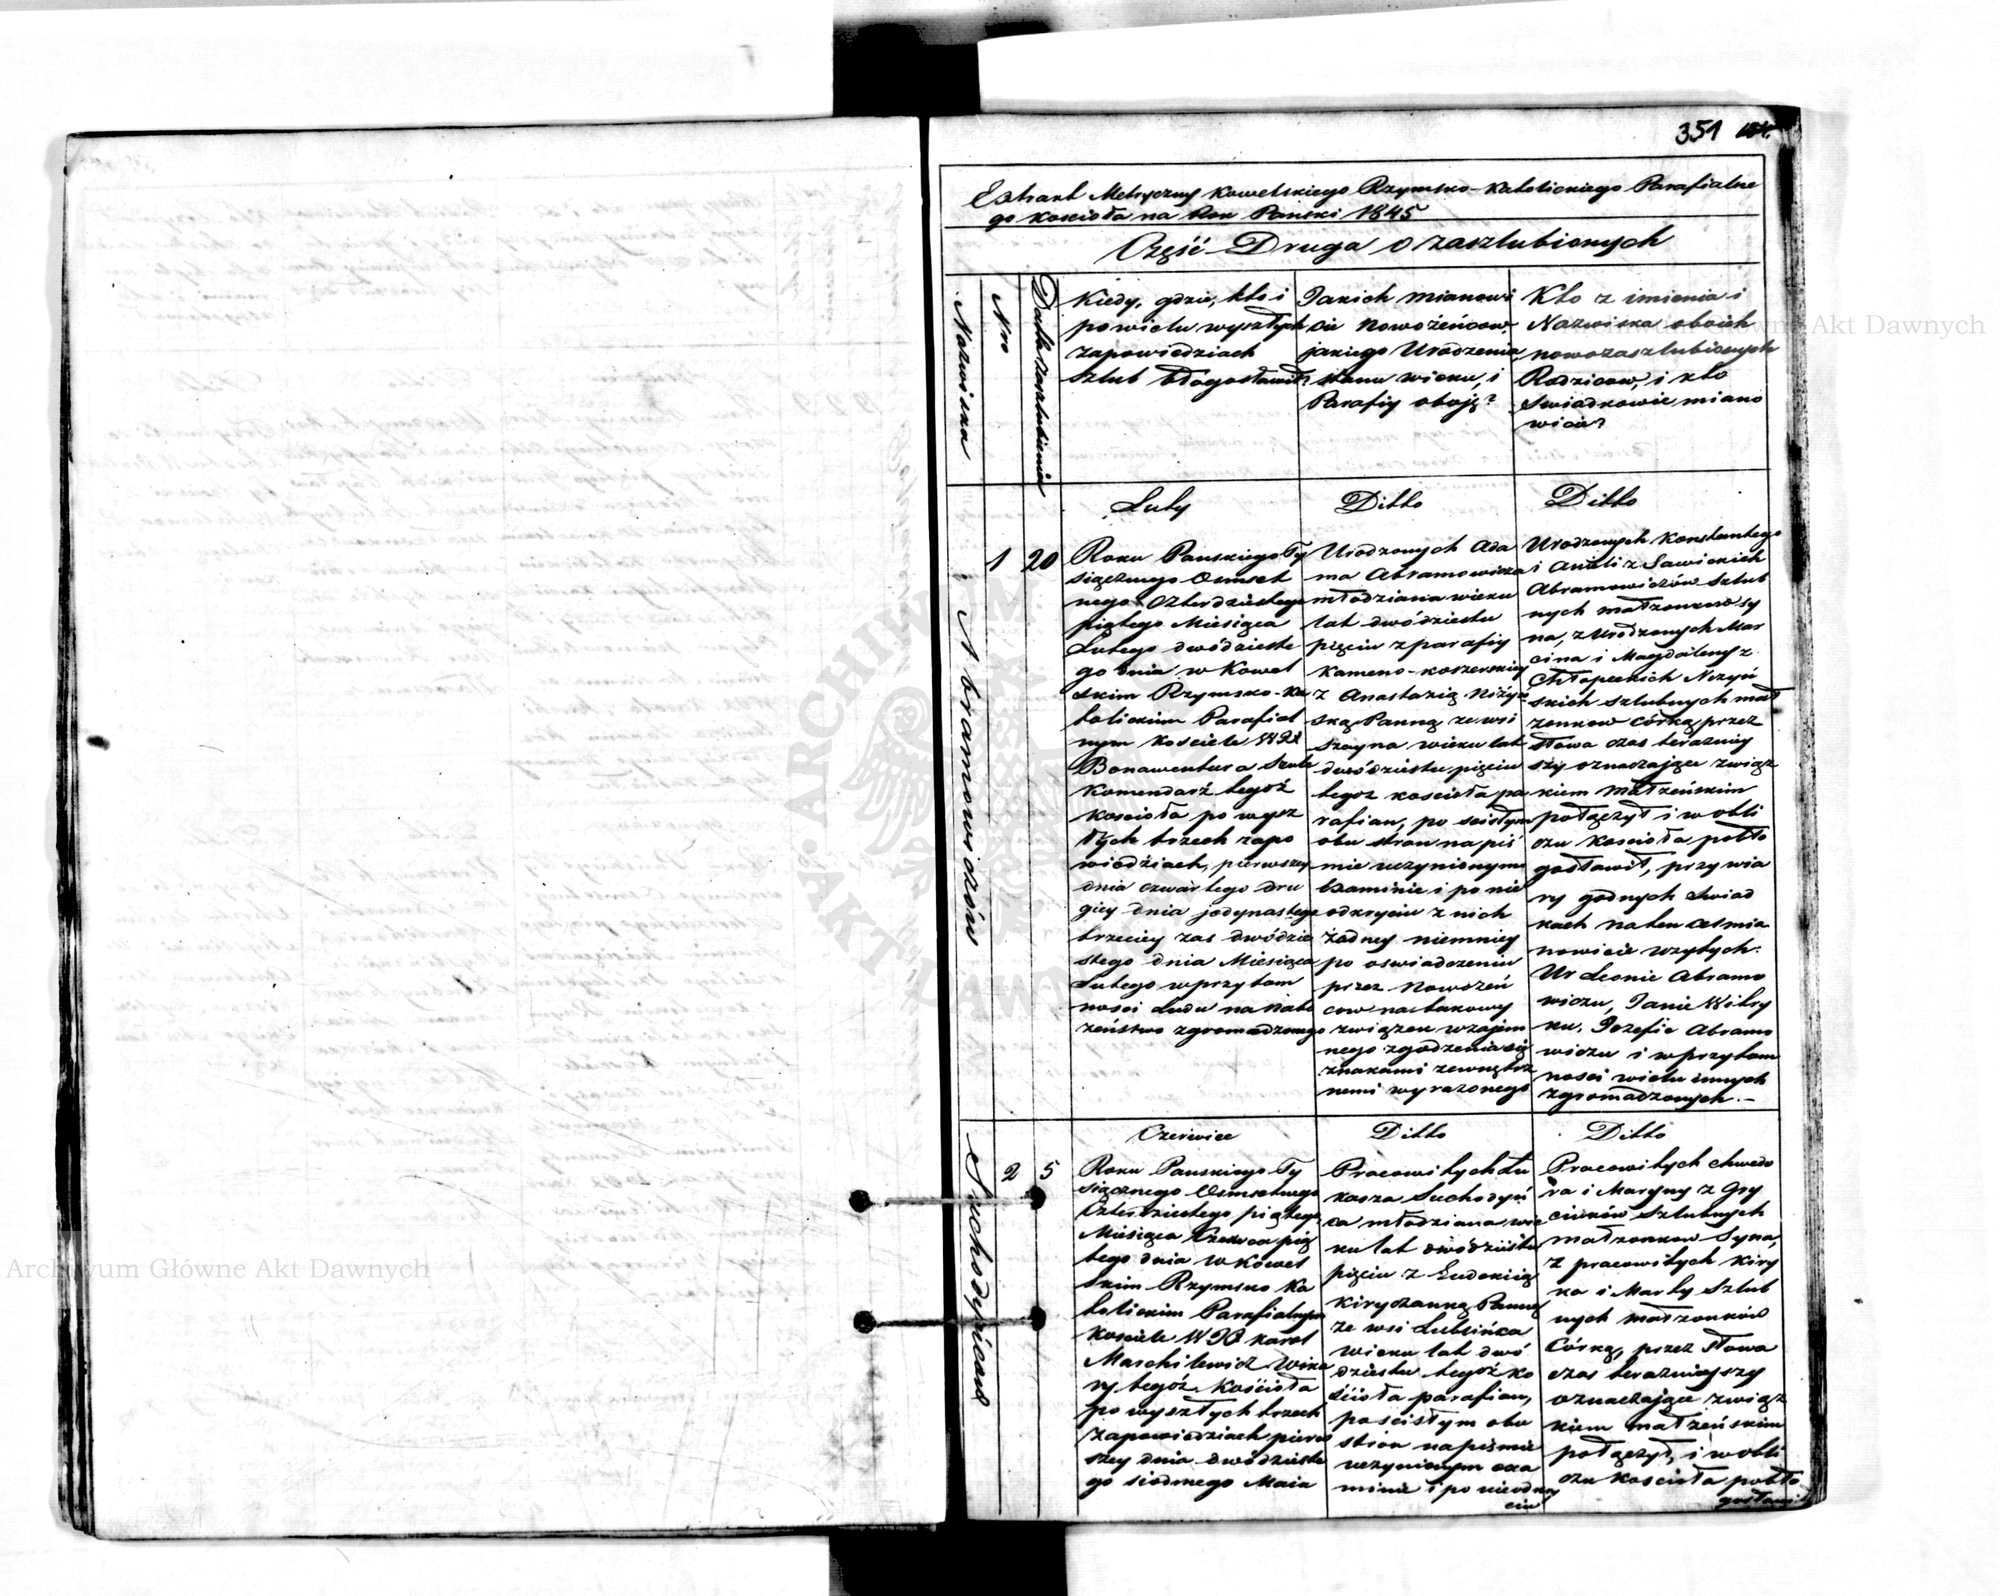 351
Extrakt Metryczny Kowelskiego Rzymsko-Katolickiego Parafialne
go Kościoła na Rok Pański 1845
Część Druga o zaszlubionych
Nazwiska
Nro
Datta zaszlubienia
Kiedy, gdzie, kto i
po wielu wyszłych
zapowiedziach
szlub błogosławił?
Jakich mianowi
cie Nowożeńcow
jakiego Urodzenia
stanu wieku, i
Parafiy oboję?
Kto z imienia i
Nazwiska oboich
nowozaszlubionych
Rodzicow, i kto
Swiadkowie miano
wicie?
Abramowiczów
1
20
Luty
Roku Pańskiego Ty
siącznego Ośmset
nego Czterdziestego
piątego Miesiąca
Lutego dwódzieste
go dnia w Kowel
skim Rzymsko-Ka
tolickim Parafial
nym Kościele WX
Bonawentura
Komendarż tegoż
Kościoła po wysz
łych trzech zapo
wiedziach, pierwszey
dnia czwartego dru
giey dnia jedynastego
trzeciey zas dwódzie
stego dnia Miesiąca
Lutego w przytom
ności Ludu na Nabo
żeństwo zgromadzonego
Ditto
Urodzonych Ada
ma Abramowicza
młodziana wieku
lat dwódziestu
pięciu z parafiy
Kameno-Koszerskiey
z Anastazią Niżyń
ską Panną ze wsi
wieku lat
dwódziestu pięciu
tegoż kościoła pa
rafian, po scisłym
obu stron na piś
mie uczynionym
Examinie i po nie
odkryciu z nich
żadney niemniey
po oswiadczeniu
przez Nowożeń
cow na takowy
związek wzajem
nego zgodzenia się
znakami zewnętrz
nemi wyrażonego
Ditto
Urodzonych Konstantego
i Anieli z Sawickich
Abramowiczów szlub
nych małżonków sy
na, z Urodzonych Mar
cina i Magdaleny z
Chłopeckich Niżyń
skich szlubnych mał
żonkow Córką przez
słowa czas teraźniey
szy oznaczające związ
kiem Małżeńskim
połączył i w obli
czu Kościoła pobło
gosławił, przy wia
ry godnych swiad
kach na ten akt mia
nowicie wzytych:
Ur Leonie Abramo
wiczu, Janie Witry
ku, Jozefie Abramo
wiczu i w przytom
ności wielu innych
zgromadzonych.—
Suchodyńcow
2
5
Czerwiec
Roku Pańskiego Ty
siącznego Ośmsetnego
Czterdziestego piątego
Miesiąca Czerwca pią
tego dnia w Kowel
skim Rzymsko Ka
tolickim Parafialnym
Kościele WX Karol
Marchilewicz Wika
ry tegoż Kościoła
po wyszłych trzech
zapowiedziach pierw
szey dnia dwódzieste
go siódmego Maia
Ditto
Pracowitych Łu
kasza Suchodyń
ca młodziana wie
ku lat dwódziestu
pięciu z Eudokiią
Kiryczanką Panną
ze wsi Lublińca
wieku lat dwó
dziestu tegoż ko
ścioła parafian,
po ścisłym obu
stron na piśmie
uczynionym exa
minie i po nieodkry
ciu
Ditto
Pracowitych Chwedo
ra i Maryny z Gry
ciuków Szlubnych
małżonkow Syna,
z pracowitych Kiry
ka i Marty Szlub
nych małżonków
Córką, przez słowa
czas teraźniejszy
oznaczające związ
kiem małżeńskim
połączył, i w obli
czu Kościoła pobło
gosławił
Archiwum Główne Akt Dawnych
Archiwum Główne Akt Dawnych